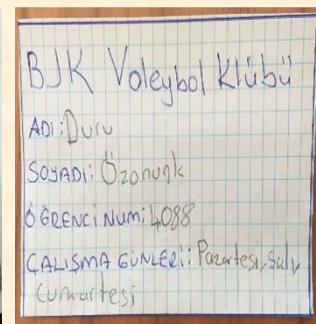 BJK Voleybol Klübü
ADI: Duru
SOYADI: Özonunk
ÖĞRENCİ NUM: 4088
ÇALIŞMA GÜNLERİ: Pazartesi, Salı,
Cumartesi